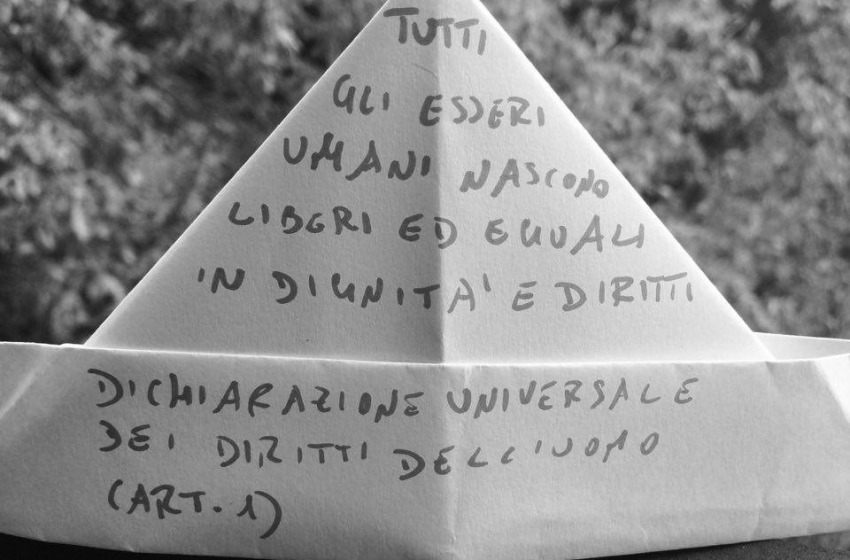 TUTTI
GLI ESSERI
UMANI NASCONO
LIBERI ED EGUALI
IN DIGNITA' E DIRITTI
DICHIARAZIONE UNIVERSALE
DEI DIRITTI DELL'UOMO
(ART. 1)